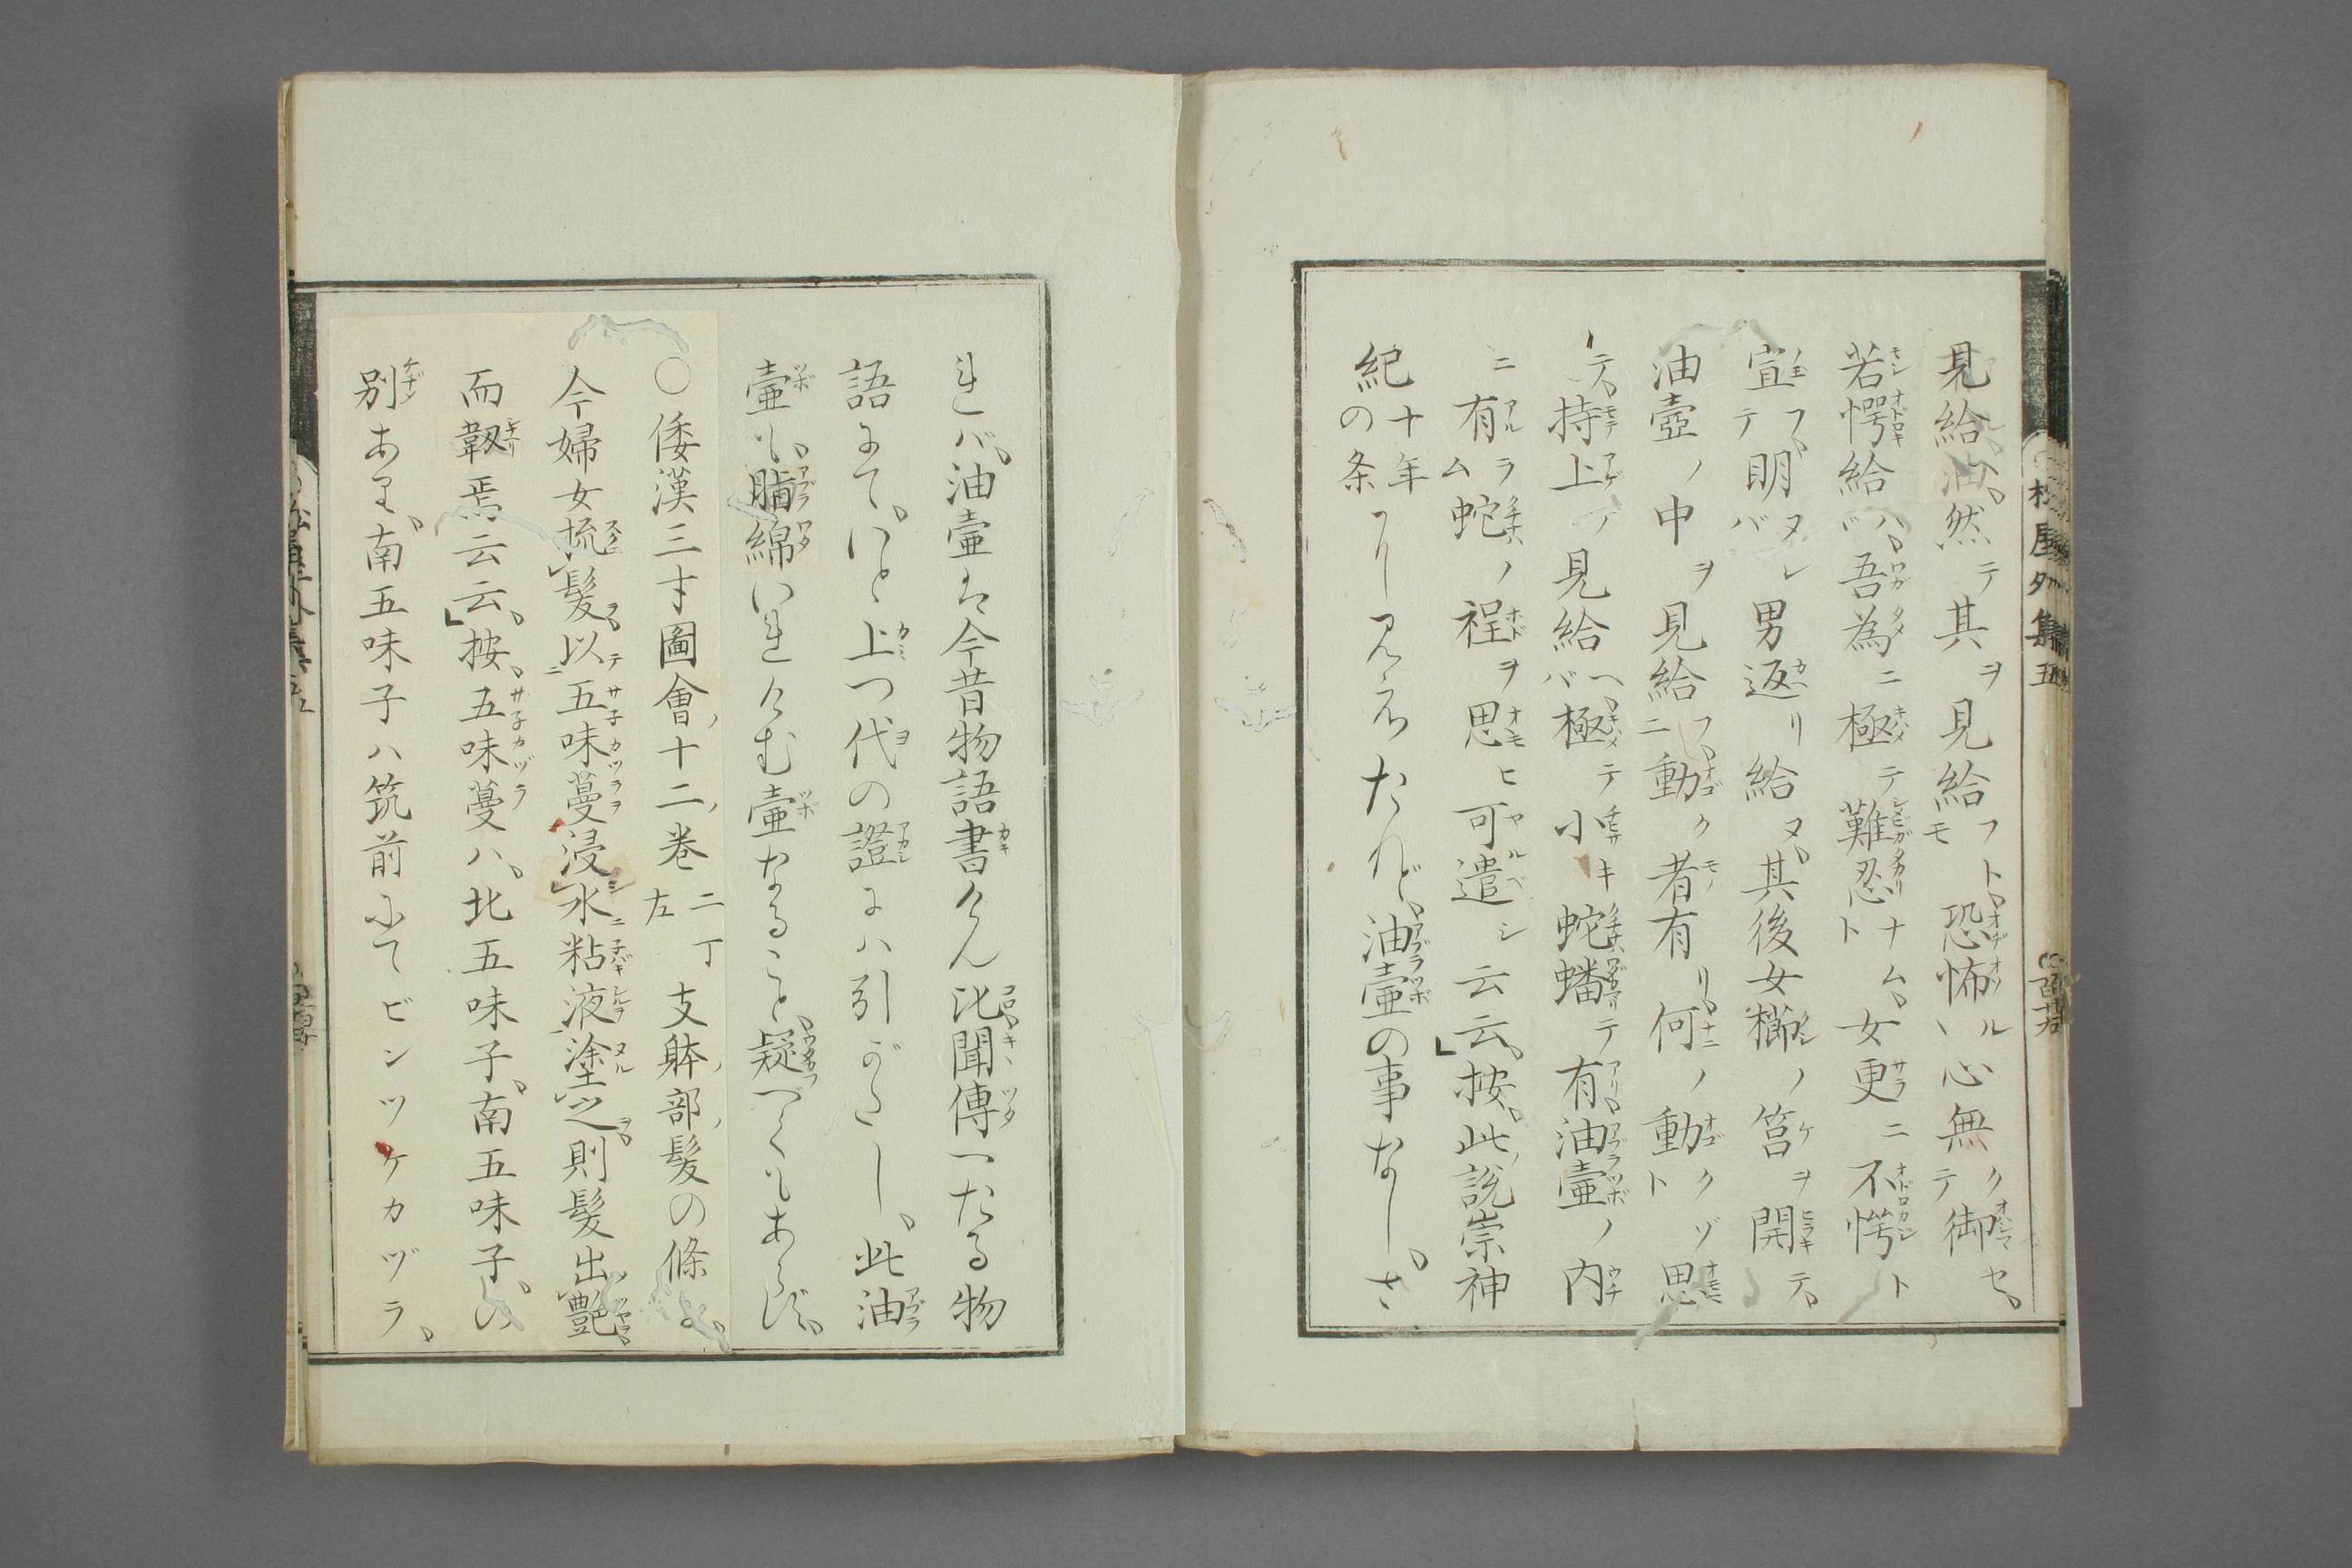 見給油然テ其ヲ見給フトモ恐怖ルヽ心無クテ御セ、
若愕給ハバ、吾為ニ極テ難忍カリナムト、女更ニ不愕ト
宣フ、テ明ヌレバ男返リ給ヌ、其後女櫛ノ筥ヲ開テ、
油壺ノ中ヲ見給フニ、動ク者有リ、何ノ動クゾト思
テ、持上テ見給ヘバ、極テ小キ蛇蟠テ有リ、油壷ノ内
ニ有ラム蛇ノ程ヲ思ヒ可遣シ云云、」按、此説崇神
紀十年の条よりみえたれど、油壷の事なし、さ
れバ、油壷は今昔物語書けん比聞傳へたる物
語にて、いと上つ代の證にハ引がたし、此油
壷ハ、脂綿いれけむ壷なること、疑べくもあらず、
〇倭漢三才圖會十二巻二丁左支躰部髪の條に、
今婦女梳髪、以五味蔓浸水粘液塗之、則髪出艶
而靱焉云云、」按、五味蔓ハ、北五味子、南五味子、の
別あり、南五味子ハ筑前にてビンツケカヅラ、
松屋外集五